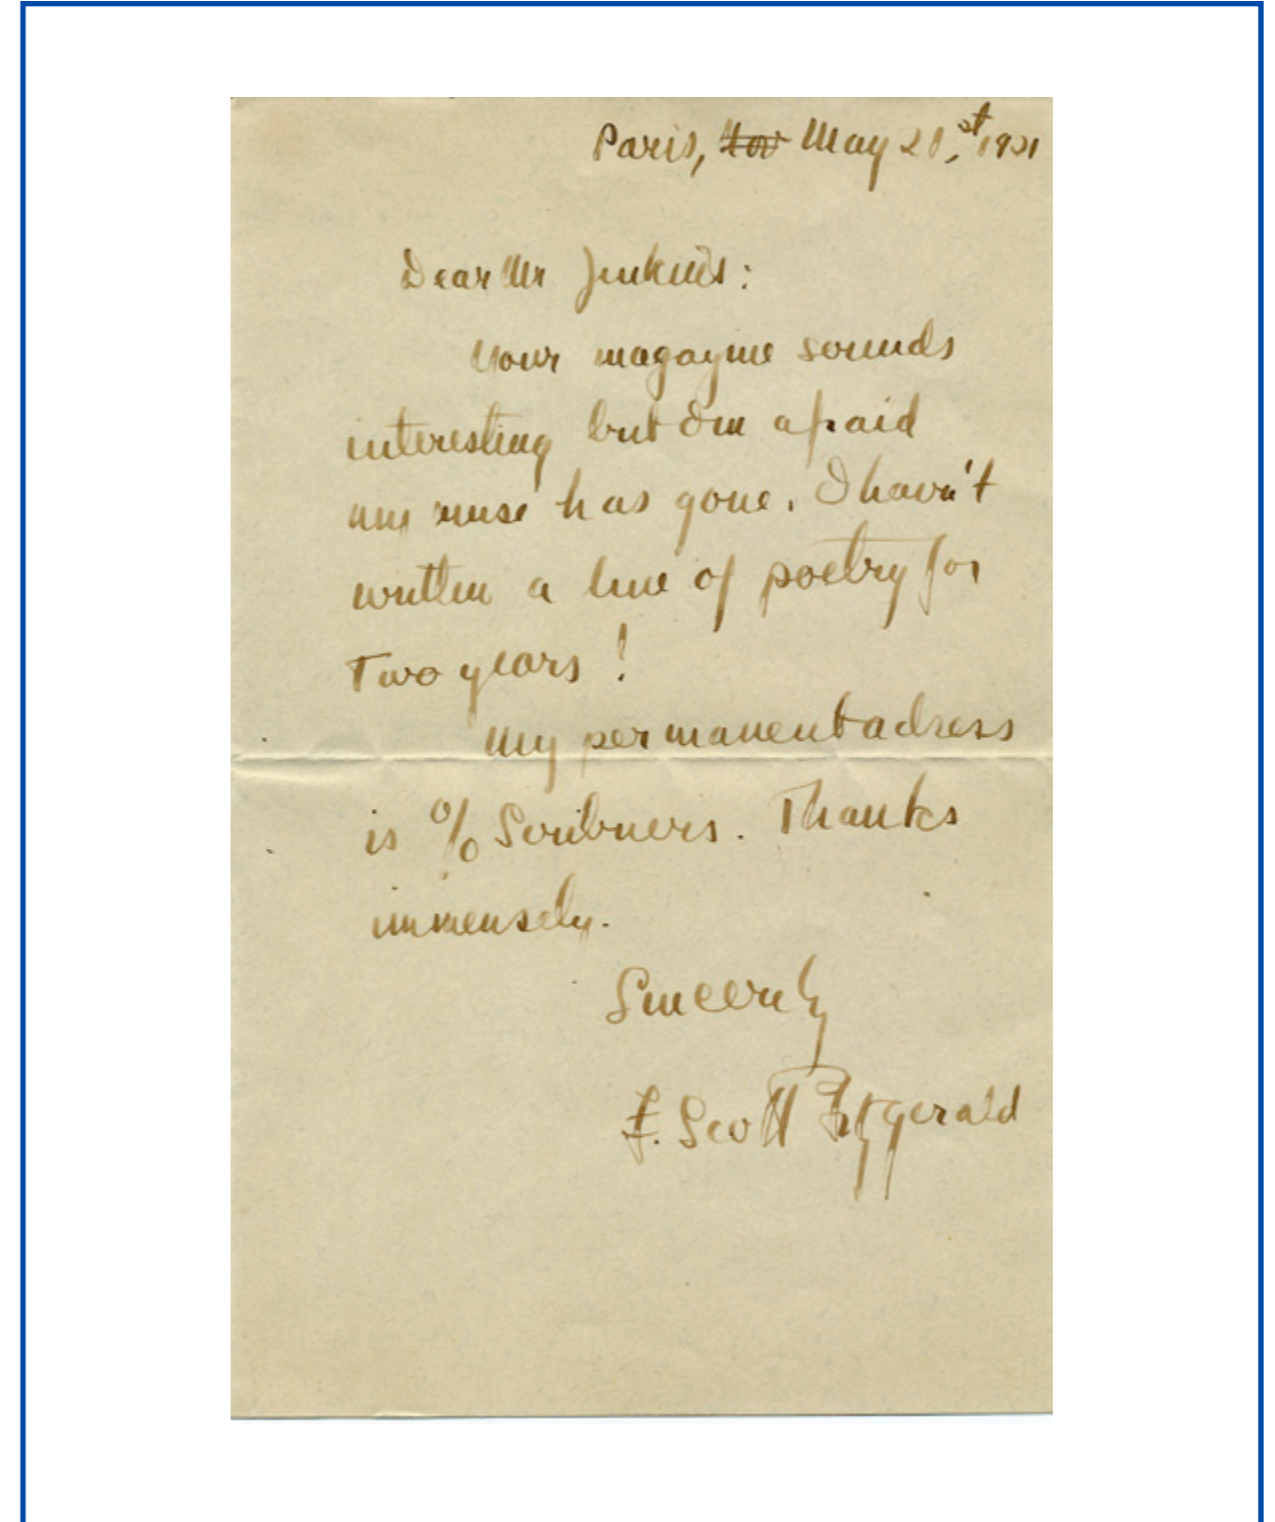 Paris, May 21st, 1921
Dear Mr Jenkins:
Your magazine sounds
interesting but I'm afraid
my muse has gone. I havn't
written a line of poetry for
Two years!
My permanent adress
is % Scribners. Thanks
immensely.
Sincerely
F. Scott Fitzgerald